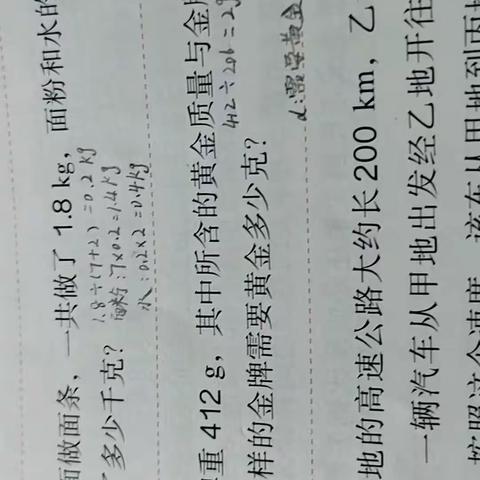 面做面条，一共做了 1.8 kg，面粉和水的
多少千克？
1.8÷(7+2)=0.2kg
面粉:7×0.2=1.4kg
水:0.2×2=0.4kg
重 412 g，其中所含的黄金质量与金
412÷206=2g
样的金牌需要黄金多少克？
需要黄金
地的高速公路大约长 200 km，乙
一辆汽车从甲地出发经乙地开往
按照这个速度，该车从甲地到丙